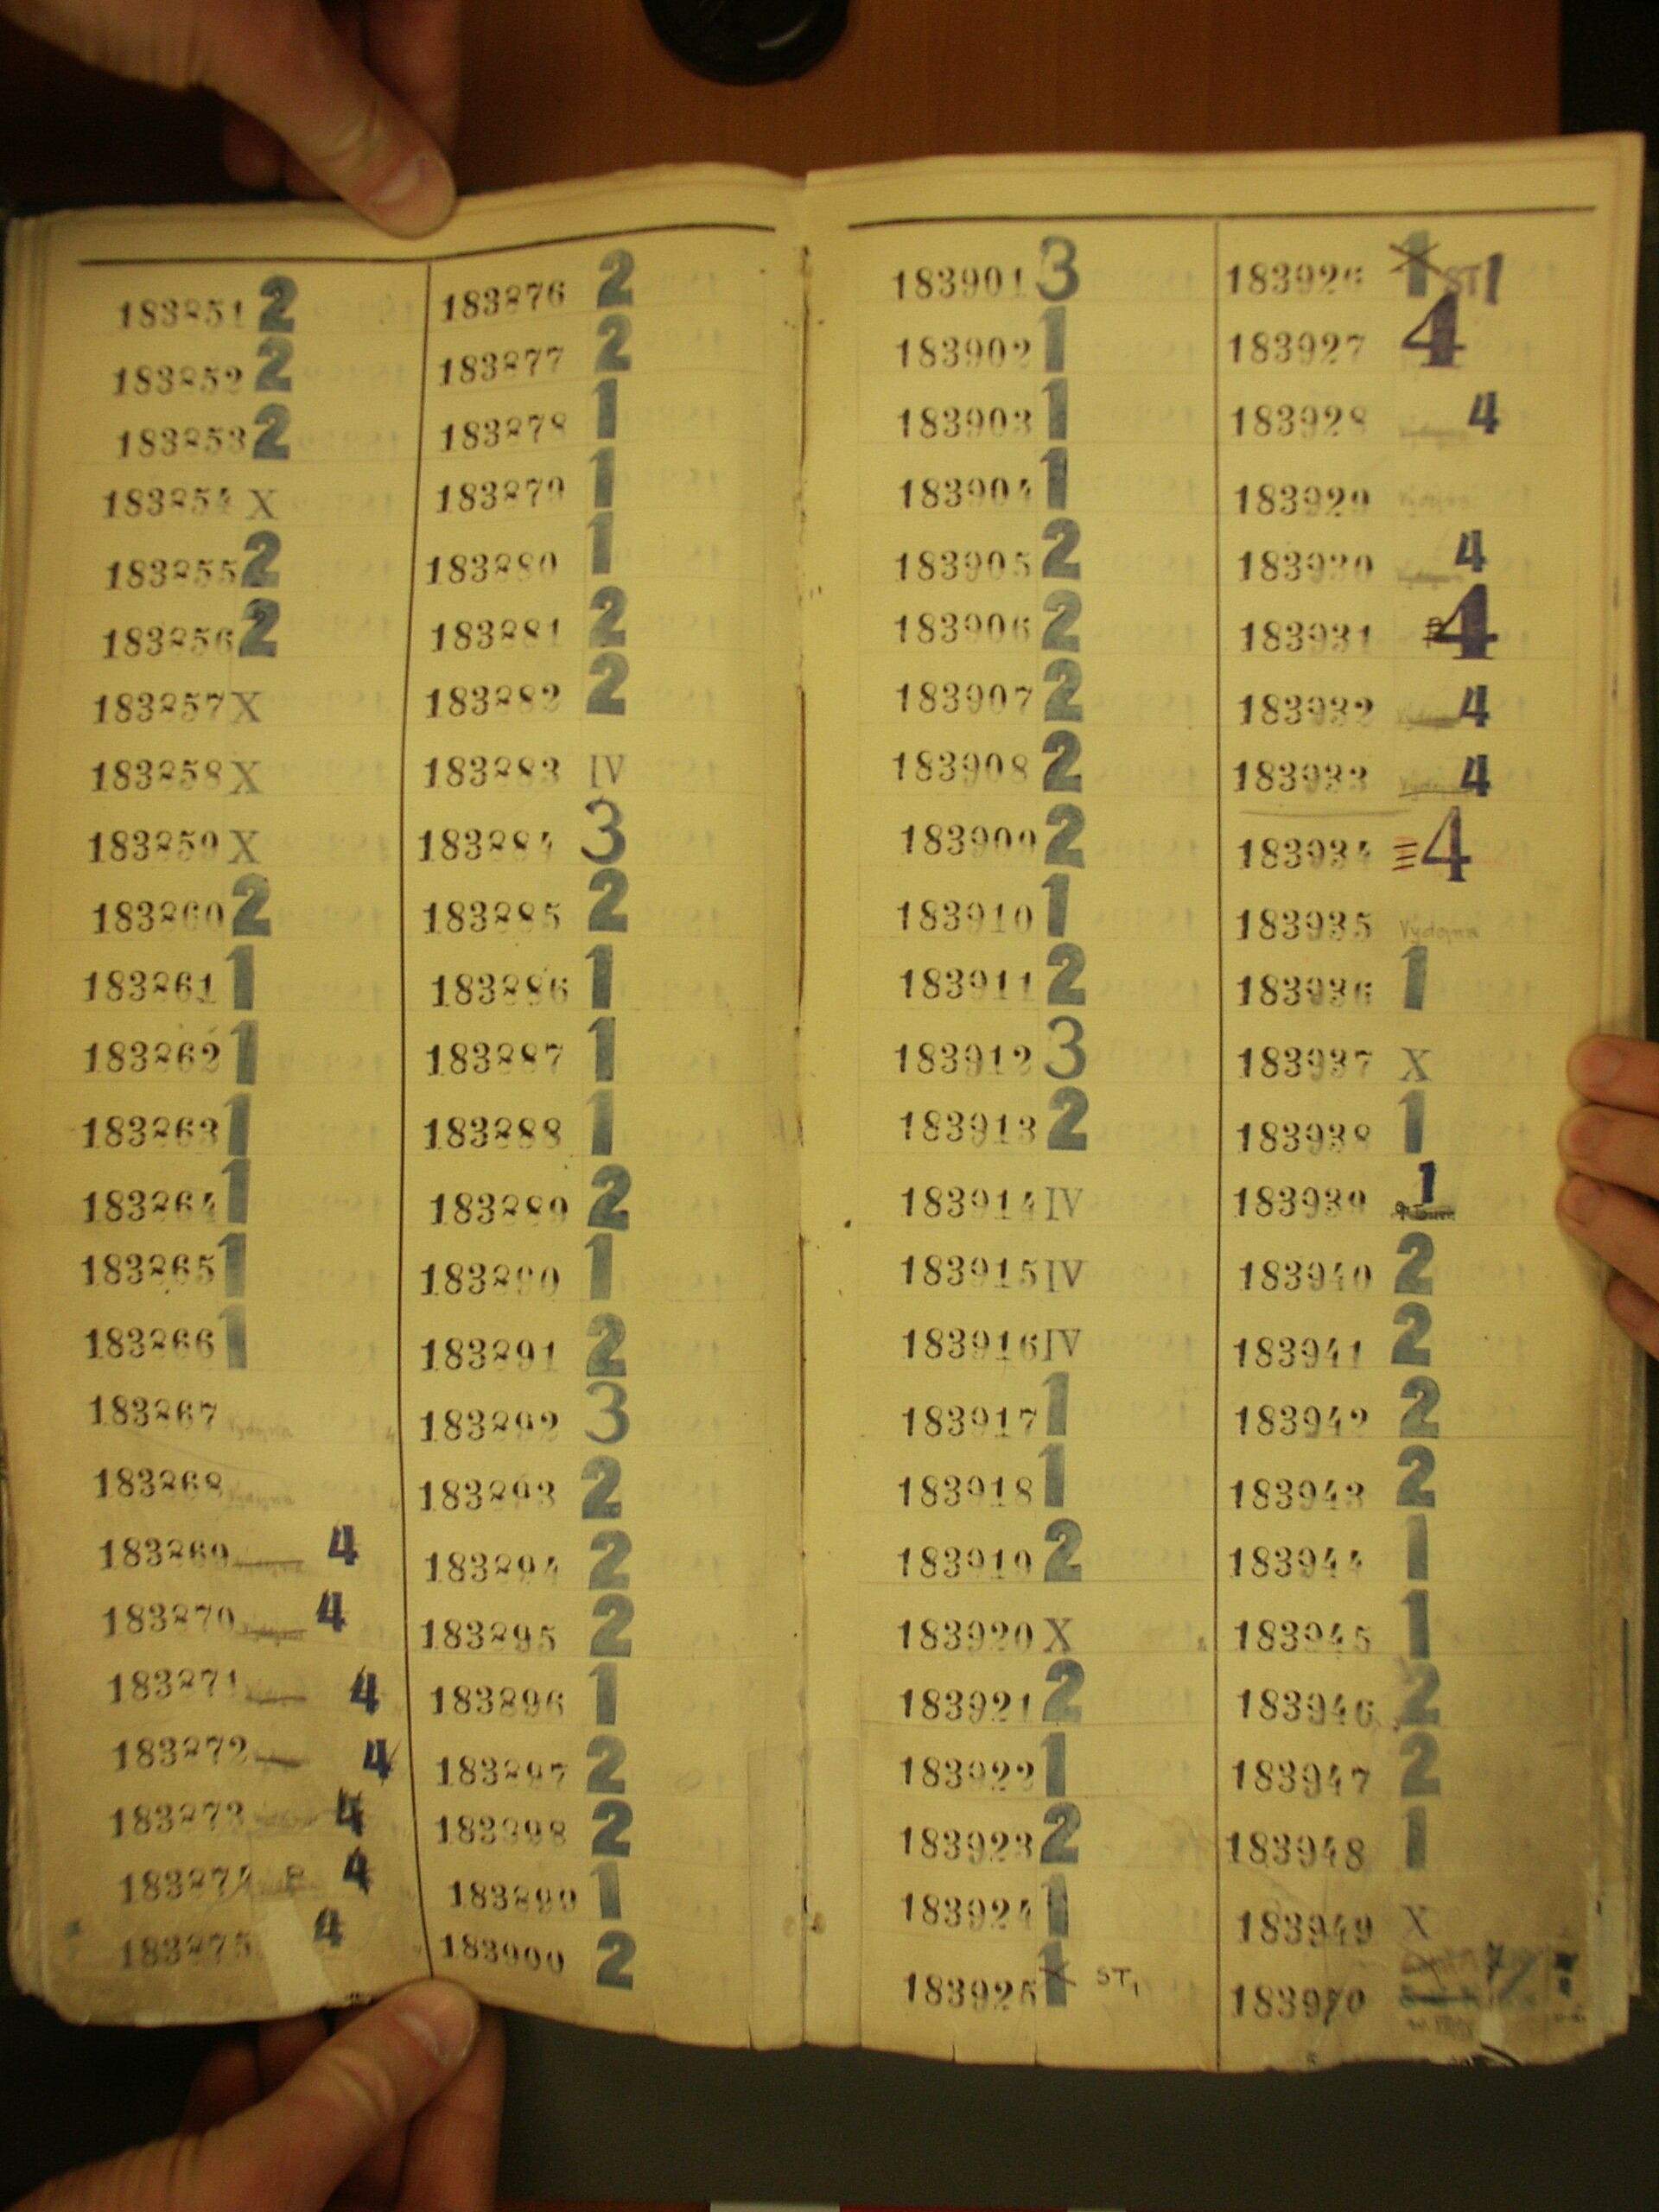 183851 2
183852 2
183853 2
183854 X
183855 2
183856 2
183857 X
183858 X
183859 X
183860 2
183861 1
183862 1
183863 1
183864 1
183865 1
183866 1
183867 Vydejna
183868 Vydejna
183869 4
183870 4
183871 4
183872 4
183873 4
183874 4
183875 4
183876 2
183877 2
183878 1
183879 1
183880 1
183881 2
183882 2
183883 IV
183884 3
183885 2
183886 1
183887 1
183888 1
183889 2
183890 1
183891 2
183892 3
183893 2
183894 2
183895 2
183896 1
183897 2
183898 2
183899 1
183900 2
183901 3
183902 1
183903 1
183904 1
183905 2
183906 2
183907 2
183908 2
183909 2
183910 1
183911 2
183912 3
183913 2
183914 IV
183915 IV
183916 IV
183917 1
183918 1
183919 2
183920 X
183921 2
183922 1
183923 2
183924 1
183925 1 ST1
183926 1 ST1
183927 4
183928 4
183929 Vydejna
183930 4
183931 4
183932 4
183933 4
183934 4
183935 Vydejna
183936 1
183937 X
183938 1
183939 1
183940 2
183941 2
183942 2
183943 2
183944 1
183945 1
183946 2
183947 2
183948 1
183949 X